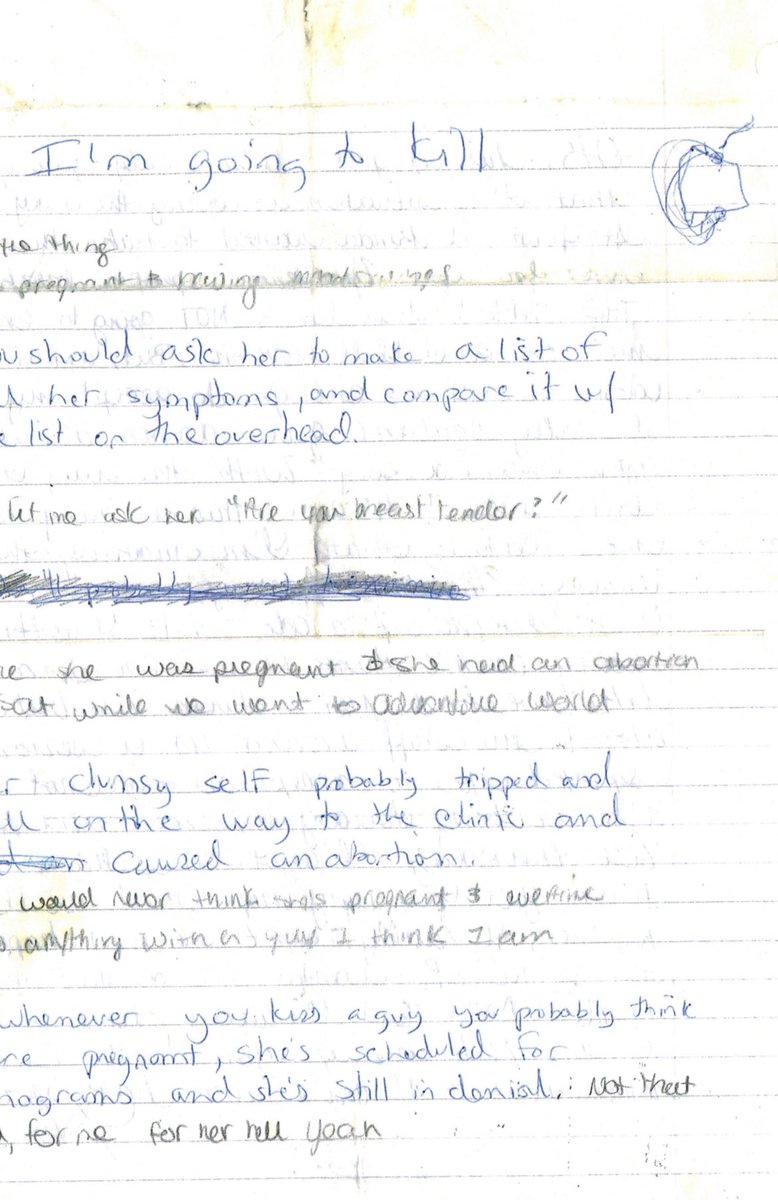 I'm going to kill
the thing
pregnant & having
u should ask her to make a list of
her symptoms, and compare it w/
e list on the overhead.
let me ask her "Are you breast tendor?"
probably
re she was pregnant & she head an abortion
sat while we went to adventure world
r clumsy self probably tripped and
ll on the way to the clinic and
caused an abortion.
would never think she's pregnant & evertime
anything with a guy I think I am
whenever you kiss a guy you probably think
re pregnant, she's scheduled for
nograms and she's still in denial. Not that
, for me for her hell yeah